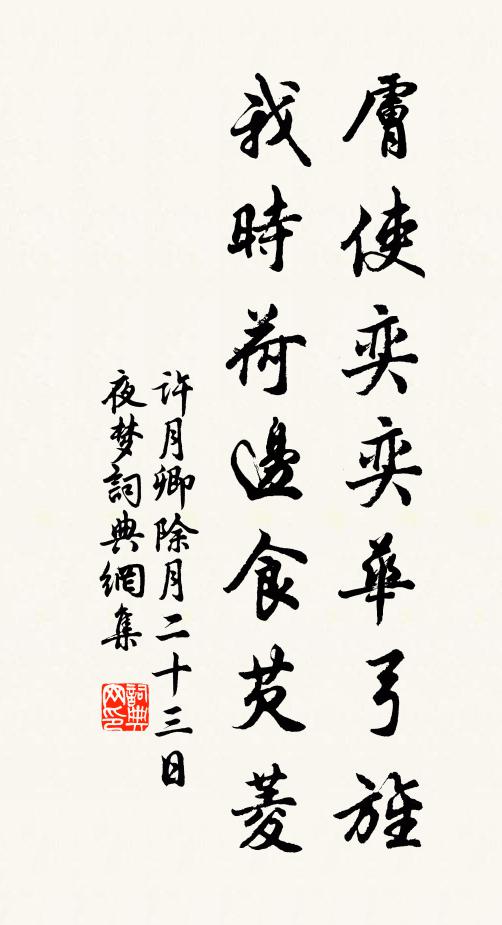 膚使奕奕華弓旌
我時荷邊食芡菱
許月卿除月二十三日
夜梦詞典網集
詞典
网印